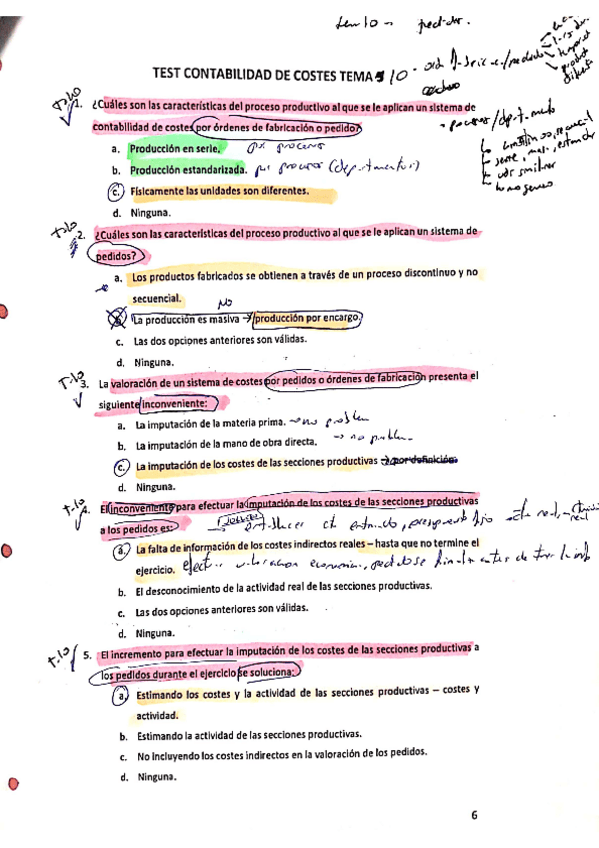 tema 10 -
TEST CONTABILIDAD DE COSTES TEMA 10
1. ¿Cuáles son las características del proceso productivo al que se le aplican un sistema de
contabilidad de costes por órdenes de fabricación o pedido?
a. Producción en serie. por proceso
b. Producción estandarizada. por proceso (departamentos)
c. Físicamente las unidades son diferentes.
d. Ninguna.
T.10 2. ¿Cuáles son las características del proceso productivo al que se le aplican un sistema de
pedidos?
a. Los productos fabricados se obtienen a través de un proceso discontinuo y no
secuencial.
NO
La producción es masiva → producción por encargo.
c. Las dos opciones anteriores son válidas.
d. Ninguna.
T.10 3. La valoración de un sistema de costes por pedidos o órdenes de fabricación presenta el
siguiente inconveniente:
a. La imputación de la materia prima. → no problem
b. La imputación de la mano de obra directa. → no problem
c. La imputación de los costes de las secciones productivas → por definición.
d. Ninguna.
T.10 4. El inconveniente para efectuar la imputación de los costes de las secciones productivas
a los pedidos es:
a. La falta de información de los costes indirectos reales – hasta que no termine el
ejercicio.
b. El desconocimiento de la actividad real de las secciones productivas.
c. Las dos opciones anteriores son válidas.
d. Ninguna.
T.10 5. El incremento para efectuar la imputación de los costes de las secciones productivas a
los pedidos durante el ejercicio se soluciona:
a. Estimando los costes y la actividad de las secciones productivas – costes y
actividad.
b. Estimando la actividad de las secciones productivas.
c. No incluyendo los costes indirectos en la valoración de los pedidos.
d. Ninguna.
6